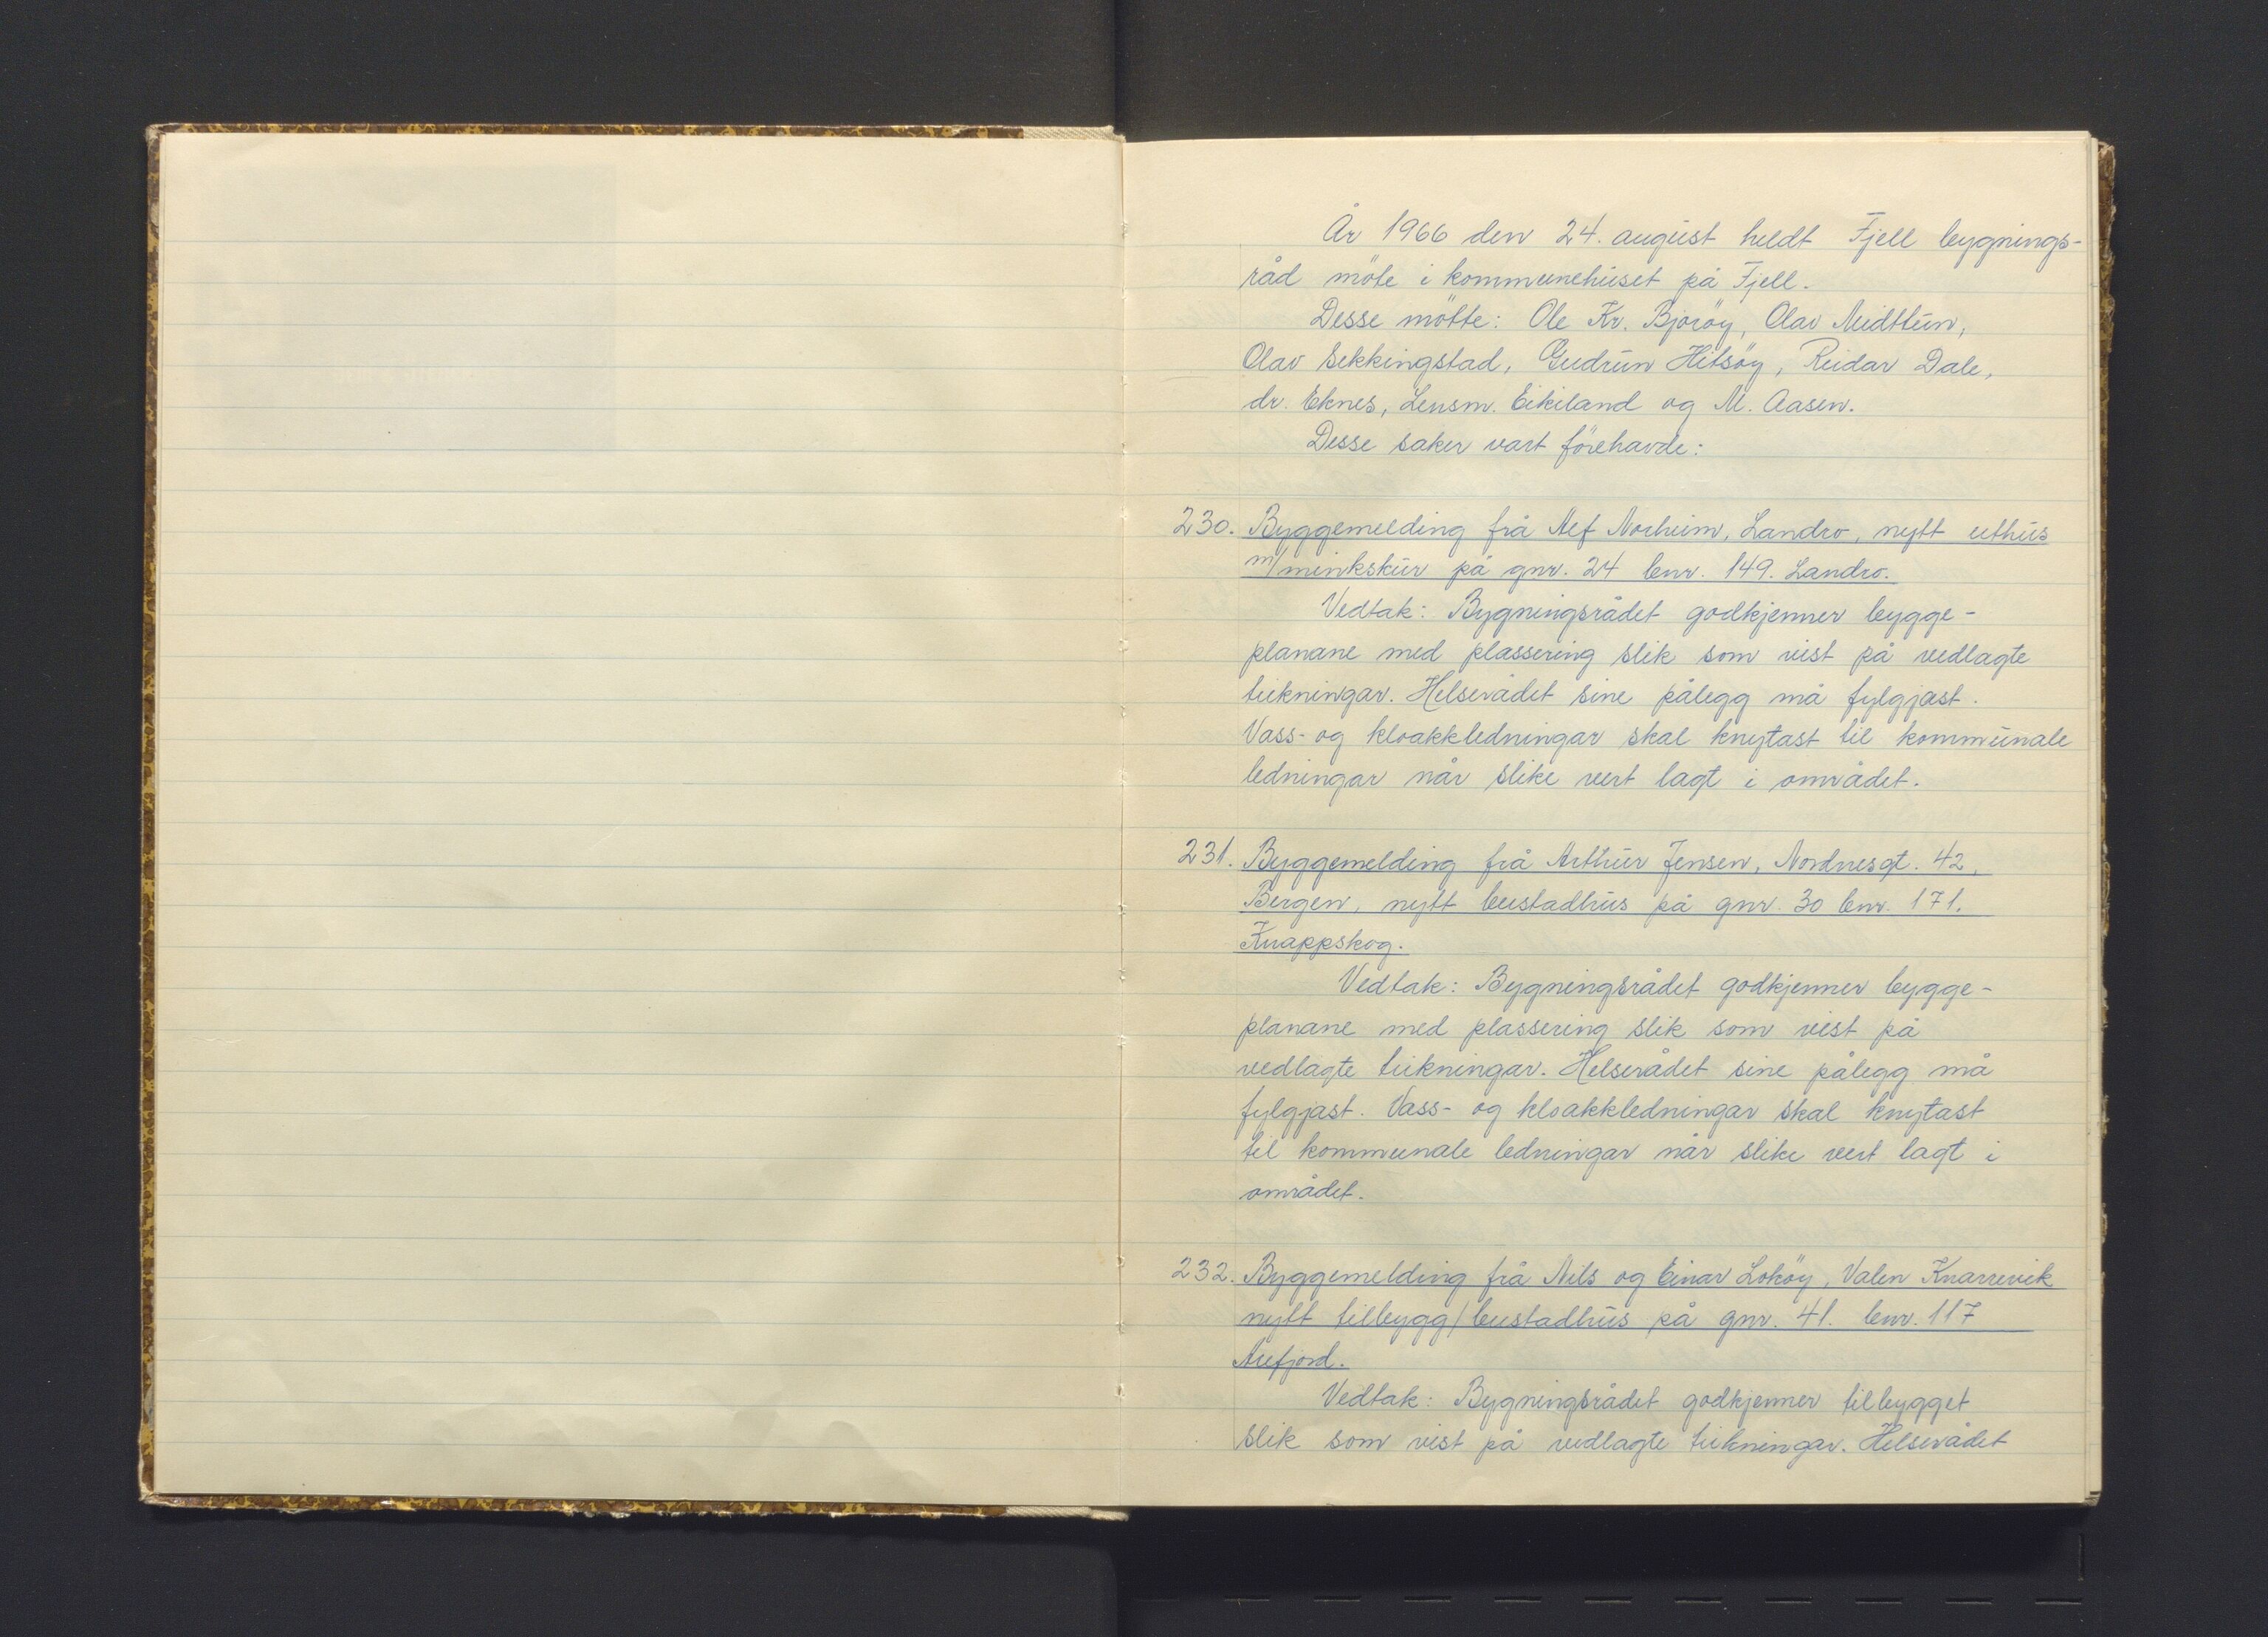 År 1966 den 24. august heldt Fjell bygnings-
råd möte i kommunehuset på Fjell.
Desse møtte: Ole Kr. Bjorøy, Olav Midttun,
Olav Sekkingstad, Gudrun Hitsöy, Reidar Dale,
dr. Eknes, Lensm. Eikiland og M. Aasen.
Desse saker vart förehavde:
230. Byggemelding frå Alf Norheim, Landro, nytt uthus
m/minkskur på gnr. 24 bnr. 149. Landro.
Vedtak: Bygningsrådet godkjenner bygge-
planane med plassering slik som vist på vedlagte
teikningar. Helserådet sine pålegg må fylgjast.
Vass- og kloakkledningar skal knytast til kommunale
ledningar når slike vert lagt i området.
231. Byggemelding frå Arthur Jensen, Nordnesgt. 42,
Bergen, nytt bustadhus på gnr. 30 bnr. 171.
Knappskog.
Vedtak: Bygningsrådet godkjenner bygge-
planane med plassering slik som vist på
vedlagte teikningar. Helserådet sine pålegg må
fylgjast. Vass- og kloakkledningar skal knytast
til kommunale ledningar når slike vert lagt i
området.
232. Byggemelding frå Nils og Einar Loköy, Valen Knarrevik
nytt tilbygg/bustadhus på gnr. 41. bnr. 117
Arefjord.
Vedtak: Bygningsrådet godkjenner tilbygget
slik som vist på vedlagte teikningar. Helserådet